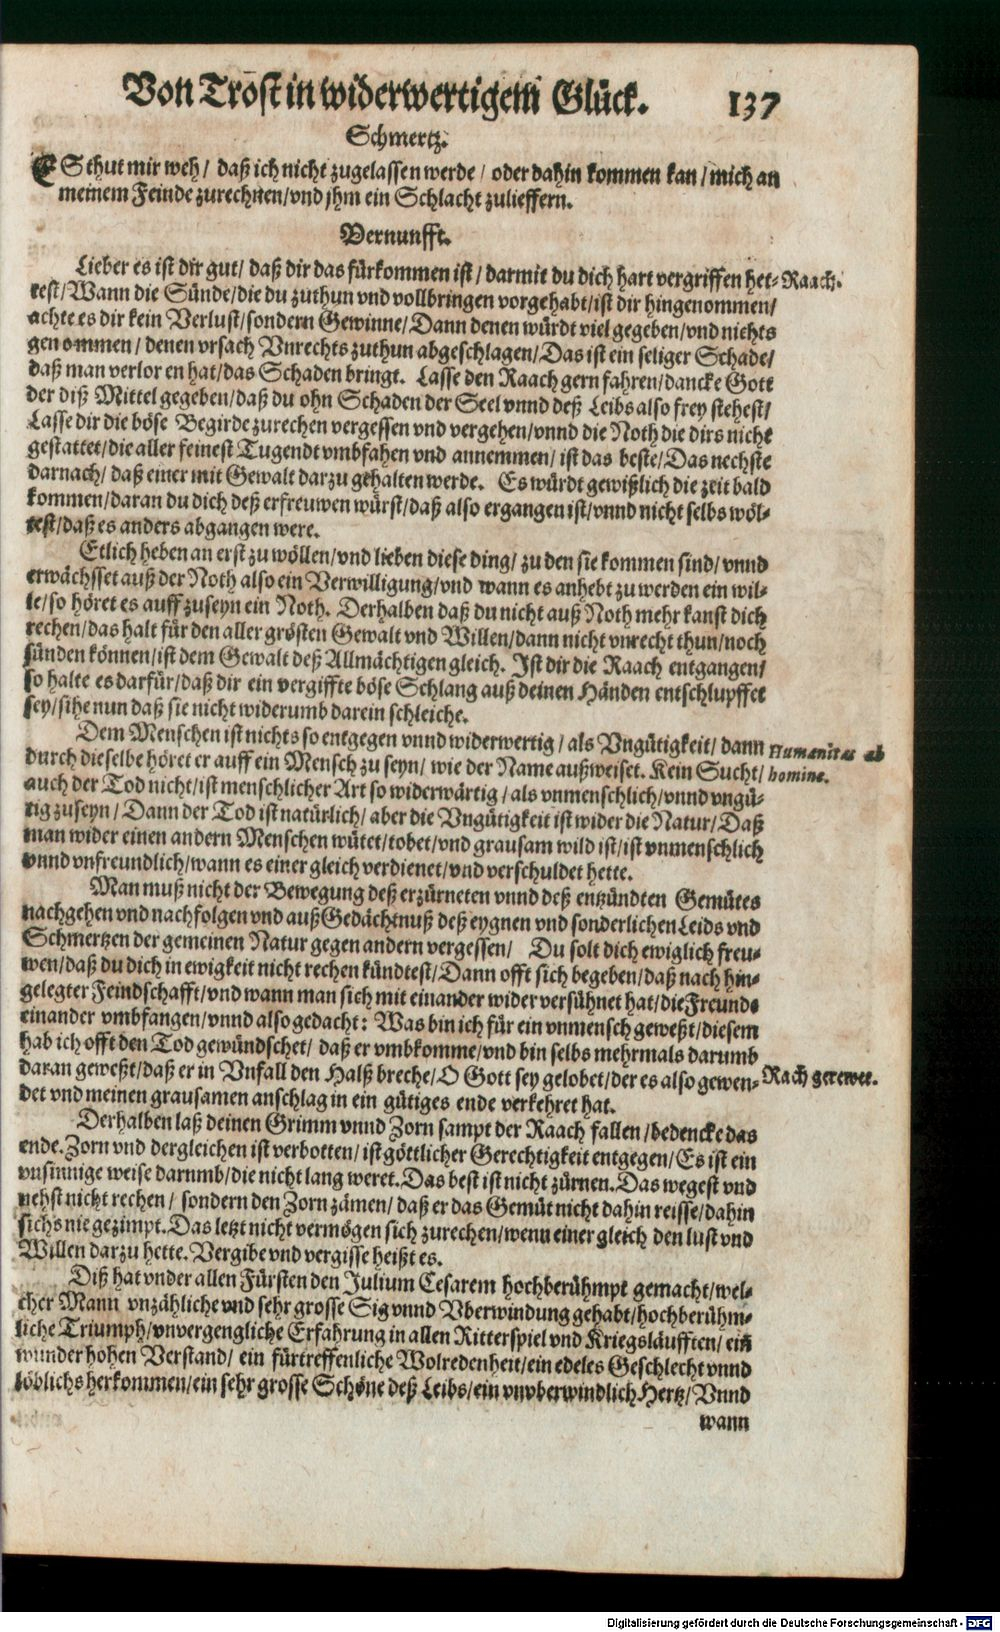 Von Trost in widerwertigem Glück. 137
Schmertz.
ES thut mir weh / daß ich nicht zugelassen werde / oder dahin kommen kan / mich an
meinem Feinde zurechnen/vnd jhm ein Schlacht zulieffern.
Vernunfft.
Lieber es ist dir gut/ daß dir das fürkommen ist / darmit du dich hart vergriffen het- Raach.
test/Wann die Sünde/die du zuthun vnd vollbringen vorgehabt/ist dir hingenommen/
achte es dir kein Verlust/sondern Gewinne/Dann denen würdt viel gegeben/vnd nichts
genommen / denen vrsach Vnrechts zuthun abgeschlagen/Das ist ein seliger Schade/
daß man verloren hat/das Schaden bringt. Lasse den Raach gern fahren/dancke Gott
der diß Mittel gegeben/daß du ohn Schaden der Seel vnnd deß Leibs also frey stehest/
Lasse dir die böse Begirde zurechen vergessen vnd vergehen/vnnd die Noth die dirs nicht
gestattet/die aller feinest Tugendt vmbfahen vnd annemmen/ ist das beste/Das nechste
darnach/ daß einer mit Gewalt darzu gehalten werde. Es würdt gewißlich die zeit bald
kommen/daran du dich deß erfreuwen würst/daß also ergangen ist/vnnd nicht selbs wöl-
test/daß es anders abgangen were.
Etlich heben an erst zu wöllen/vnd lieben diese ding/ zu den sie kommen sind/ vnnd
erwächsset auß der Noth also ein Verwilligung/vnd wann es anhebt zu werden ein wil-
le/so höret es auff zuseyn ein Noth. Derhalben daß du nicht auß Noth mehr kanst dich
rechen/das halt für den aller grösten Gewalt vnd Willen/dann nicht vnrecht thun/noch
sünden können/ist dem Gewalt deß Allmächtigen gleich. Ist dir die Raach entgangen/
so halte es darfür/daß dir ein vergiffte böse Schlang auß deinen Händen entschlupffet
sey/sihe nun daß sie nicht widerumb darein schleiche.
Dem Menschen ist nichts so entgegen vnnd widerwertig / als Vngütigkeit/ dann Humanitas ab
durch dieselbe höret er auff ein Mensch zu seyn/ wie der Name außweiset. Kein Sucht/ homine.
auch der Tod nicht/ist menschlicher Art so widerwärtig / als vnmenschlich/vnnd vngü-
tig zuseyn / Dann der Tod ist natürlich/ aber die Vngütigkeit ist wider die Natur/Daß
man wider einen andern Menschen wütet/tobet/vnd grausam wild ist/ist vnmenschlich
vnnd vnfreundlich/wann es einer gleich verdienet/vnd verschuldet hette.
Man muß nicht der Bewegung deß erzürneten vnnd deß entzündten Gemütes
nachgehen vnd nachfolgen vnd auß Gedächtnuß deß eygnen vnd sonderlichen Leids vnd
Schmertzen der gemeinen Natur gegen andern vergessen/ Du solt dich ewiglich freu-
wen/daß du dich in ewigkeit nicht rechen kündtest/Dann offt sich begeben/daß nach hin-
gelegter Feindschafft/vnd wann man sich mit einander wider versühnet hat/die Freunde
einander vmbfangen/vnnd also gedacht: Was bin ich für ein vnmensch geweßt/diesem
hab ich offt den Tod gewündschet/ daß er vmbkomme/vnd bin selbs mehrmals darumb
daran geweßt/daß er in Vnfall den Halß breche/O Gott sey gelobet/der es also gewen- Rach gerewet.
det vnd meinen grausamen anschlag in ein gütiges ende verkehret hat.
Derhalben laß deinen Grimm vnnd Zorn sampt der Raach fallen /bedencke das
ende. Zorn vnd dergleichen ist verbotten/ ist göttlicher Gerechtigkeit entgegen/Es ist ein
vnsinnige weise darumb/die nicht lang weret. Das best ist nicht zürnen. Das wegest vnd
nehst nicht rechen / sondern den Zorn zämen/ daß er das Gemüt nicht dahin reisse/dahin
sichs nie gezimpt. Das letzt nicht vermögen sich zurechen/wenn einer gleich den lust vnd
Willen darzu hette. Vergibe vnd vergisse heißt es.
Diß hat vnder allen Fürsten den Julium Cesarem hochberühmpt gemacht/wel-
cher Mann vnzähliche vnd sehr grosse Sig vnnd Vberwindung gehabt/hochberühm-
liche Triumph/vnvergengliche Erfahrung in allen Ritterspiel vnd Kriegsläufften/ ein
wunder hohen Verstand/ ein fürtreffenliche Wolredenheit/ein edeles Geschlecht vnnd
löblichs herkommen/ein sehr grosse Schöne deß Leibs/ein vnvberwindlich Hertz/ Vnnd
wann
Digitalisierung gefördert durch die Deutsche Forschungsgemeinschaft - DFG